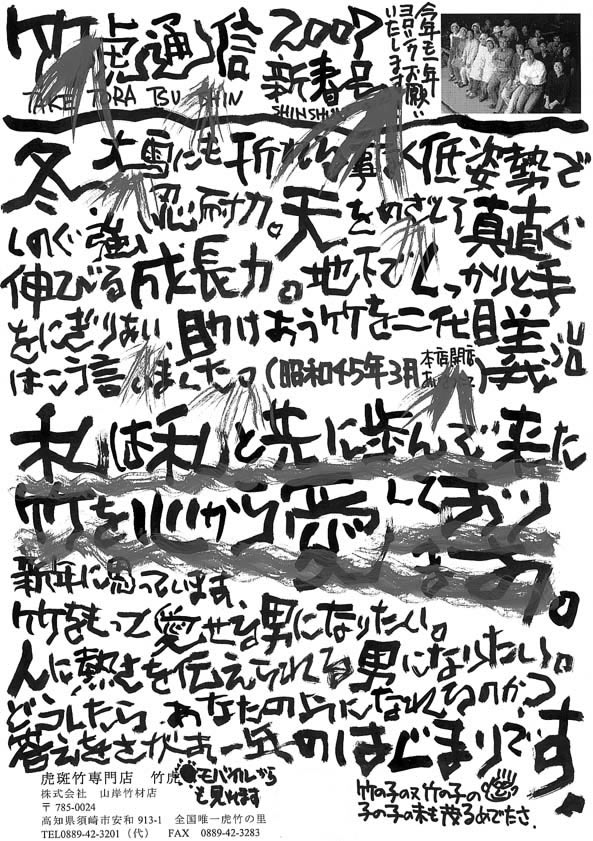 竹虎通信 2007
新春号
TAKE TORA TSUSHIN
SHINSHUN
今年も一年
ヨロシクお願い
いたします
冬、大雪にも折れる事なく低姿勢で
しのぐ強い忍耐力。天をめざして真直ぐ
伸びる成長力。地下でしっかりと手
をにぎりあい、助けあう竹を二代目義治
はこう言いました。(昭和45年3月 本店開店
あいさつ)
私は私と共に歩んで来た
竹を心から愛しており
ます。
新年に思っています、
竹をもって愛せる男になりたい。
人に熱さを伝えられる男になりたい。
どうしたら、あなたのようになれるのか?
答えをさがす一年のはじまりです!
モバイルから
も見れます
竹の子の又竹の子の
子の子の末も茂るめでたさ
虎斑竹専門店 竹虎
株式会社 山岸竹材店
〒785-0024
高知県須崎市安和 913-1 全国唯一虎竹の里
TEL0889-42-3201(代) FAX 0889-42-3283